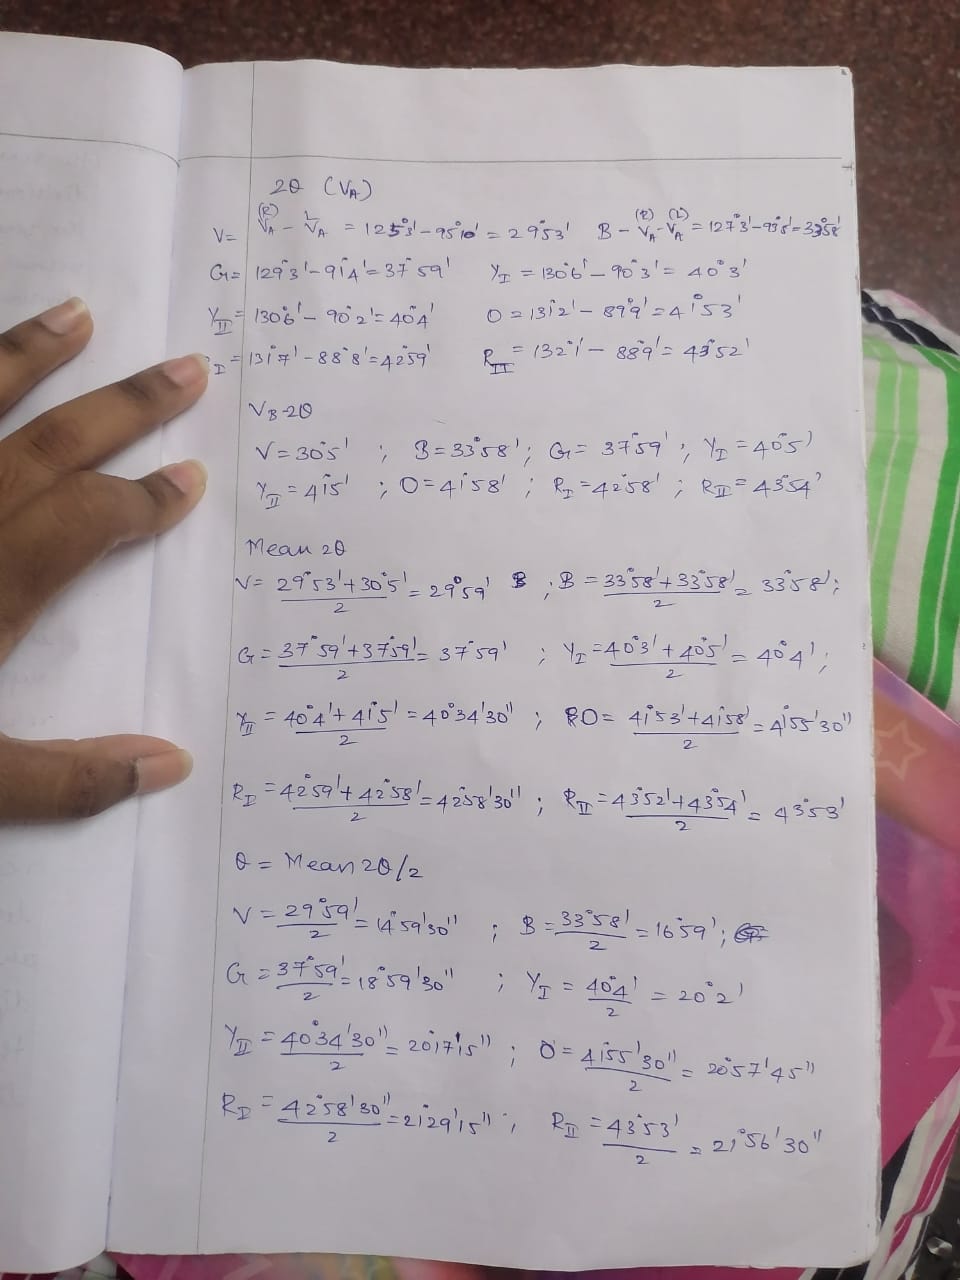 2θ (VA)
V = (R)VA - LVA = 125°3' - 95°10' = 29°53' B - (R)VA - (L)VA = 127°3' - 93°5' = 33°58'
G = 129°3' - 91°4' = 37°59' YI = 130°6' - 90°3' = 40°3'
YII = 130°6' - 90°2' = 40°4' O = 131°2' - 89°9' = 41°53'
I = 131°7' - 88°8' = 42°59' RII = 132°1' - 88°9' = 43°52'
VB-2θ
V = 30°5' ; B = 33°58' ; G = 37°59' ; YI = 40°5'
YII = 41°5' ; O = 41°58' ; RI = 42°58' ; RII = 43°54'
Mean 2θ
V = 29°53' + 30°5' / 2 = 29°59' ; B = 33°58' + 33°58' / 2 = 33°58' ;
G = 37°59' + 37°59' / 2 = 37°59' ; YI = 40°3' + 40°5' / 2 = 40°4' ;
YII = 40°4' + 41°5' / 2 = 40°34'30" ; O = 41°53' + 41°58' / 2 = 41°55'30"
RI = 42°59' + 42°58' / 2 = 42°58'30" ; RII = 43°52' + 43°54' / 2 = 43°53'
θ = Mean 2θ/2
V = 29°59' / 2 = 14°59'30" ; B = 33°58' / 2 = 16°59' ;
G = 37°59' / 2 = 18°59'30" ; YI = 40°4' / 2 = 20°2'
YII = 40°34'30" / 2 = 20°17'15" ; O = 41°55'30" / 2 = 20°57'45"
RI = 42°58'30" / 2 = 21°29'15" ; RII = 43°53' / 2 = 21°56'30"